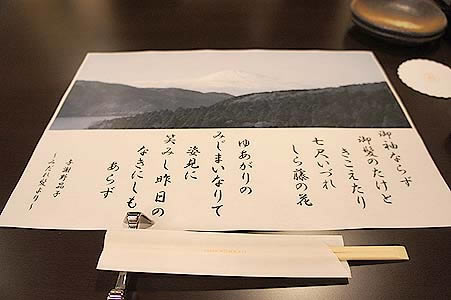 御袖ならず
御髪のたけと
きこえたり
七尺いづれ
しら藤の花
ゆあがりの
みじまいなりて
姿見に
笑みし昨日の
なきにしも
あらず
与謝野晶子
～みだれ髪より～